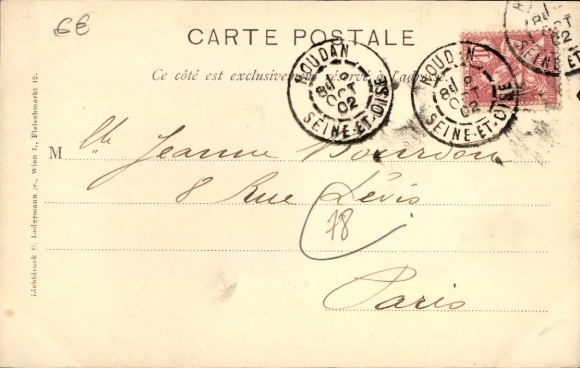 6€
CARTE POSTALE
Ce côté est exclusivement réservé à l'adresse
HOUDAN
8 OCT 02
SEINE-ET-OISE
HOUDAN
8 OCT 02
SEINE-ET-OISE
OCT 02
SEINE
Mlle Jeanne Bourdon
8 Rue Lévis
78
Paris
Lichtdruck C. Ledermann jr., Wien I., Fleischmarkt 12.